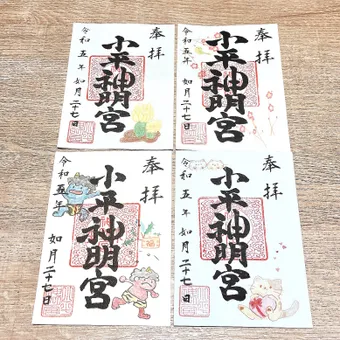 奉拝
小平神明宮
令和五年
如月二十七日
奉拝
小平神明宮
令和五年
如月二十七日
奉拝
小平神明宮
令和五年
如月二十七日
奉拝
小平神明宮
令和五年
如月二十七日